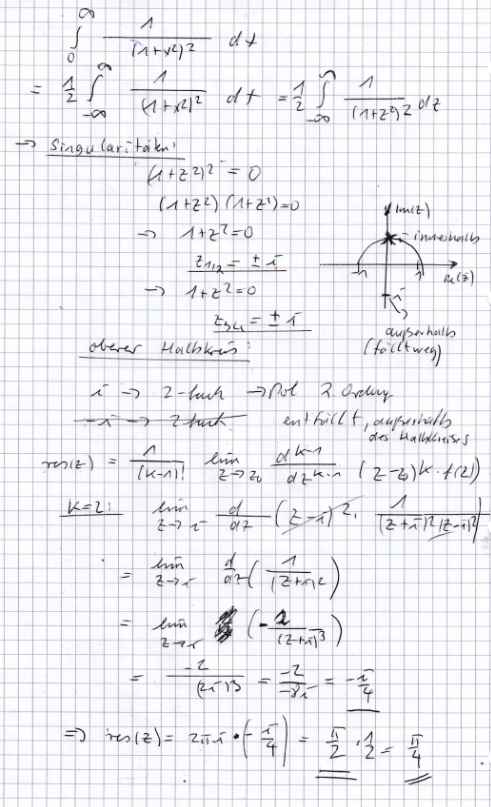 ∫₀^∞ 1/(1+x²)² dx
= 1/2 ∫_{-∞}^∞ 1/(1+x²)² dx = 1/2 ∫_{-∞}^∞ 1/(1+z²)² dz
→ Singularitäten:
(1+z²)² = 0
(1+z²)(1+z²)=0
→ 1+z²=0
z₁,₂ = ± i
→ 1+z²=0
z₃,₄ = ± i
Im(z)
innerhalb
Re(z)
außerhalb
(fällt weg)
oberer Halbkreis:
i → 2-fach → Pol 2. Ordng
-i → 2-fach entfällt, außerhalb
des Halbkreises
res(z) = 1/(k-1)! lim_{z→z₀} d^{k-1}/dz^{k-1} (z-z₀)^k · f(z)
k=2: lim_{z→i} d/dz (z-i)² · 1/((z+i)²(z-i)²)
= lim_{z→i} d/dz (1/(z+i)²)
= lim_{z→i} (-2/(z+i)³)
= -2/(2i)³ = -2/-8i = -i/4
⇒ res(z) = 2πi · (-i/4) = π/2 · 1/2 = π/4